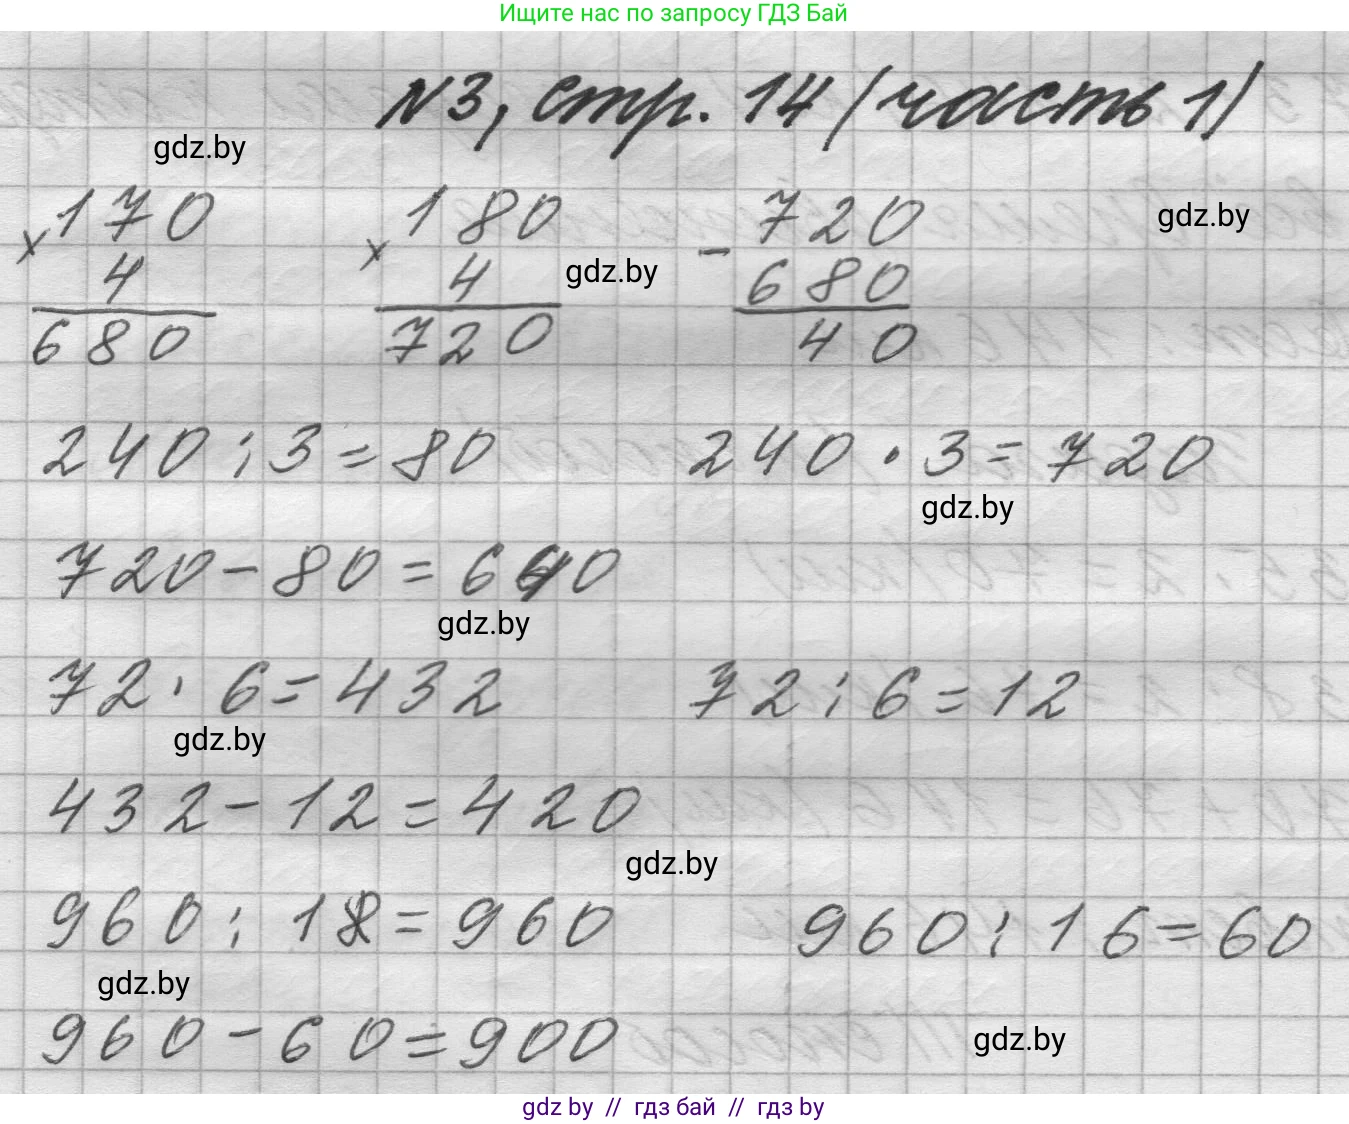 Ищите нас по запросу ГДЗ Бай
N3, стр. 14 (часть 1)
gdz.by
170 180 720
gdz.by
× 4 × 4 - 680
gdz.by
680 720 40
240 : 3 = 80 240 · 3 = 720
gdz.by
720 - 80 = 640
gdz.by
72 · 6 = 432 72 : 6 = 12
gdz.by
432 - 12 = 420
gdz.by
960 : 1 = 960 960 : 16 = 60
gdz.by
960 - 60 = 900
gdz.by
gdz by // гдз бай // гдз by